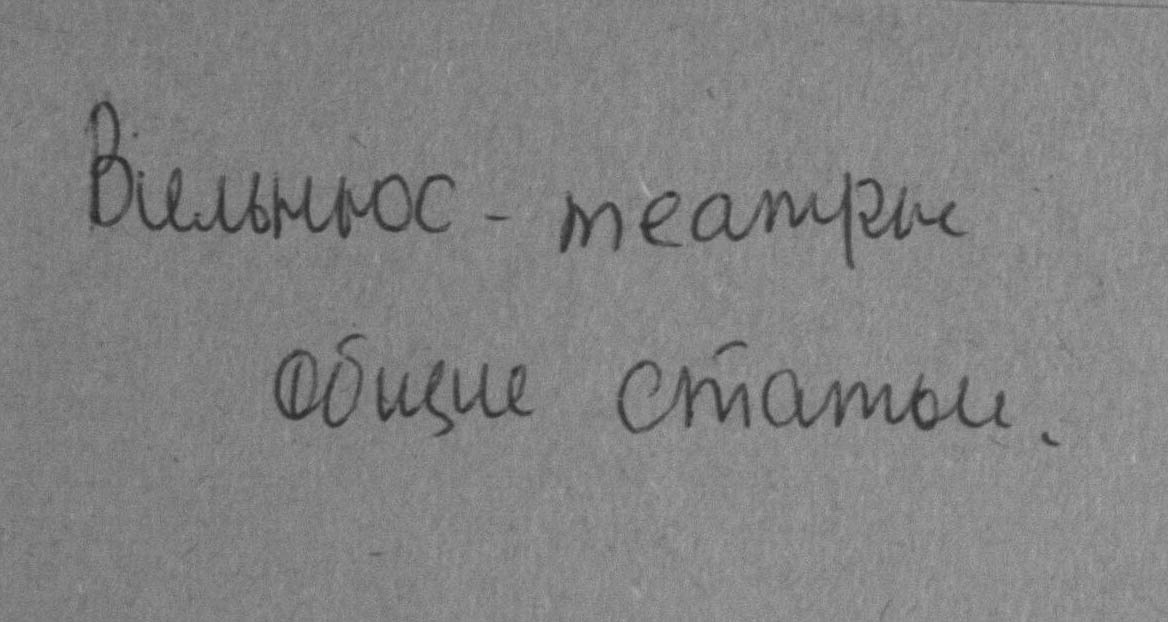 Вильнюс - театры
общие статьи.